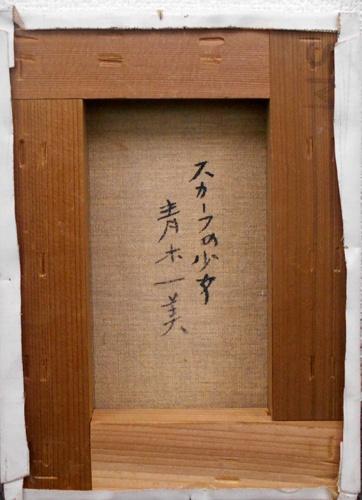 スカーフの少女
青木一美